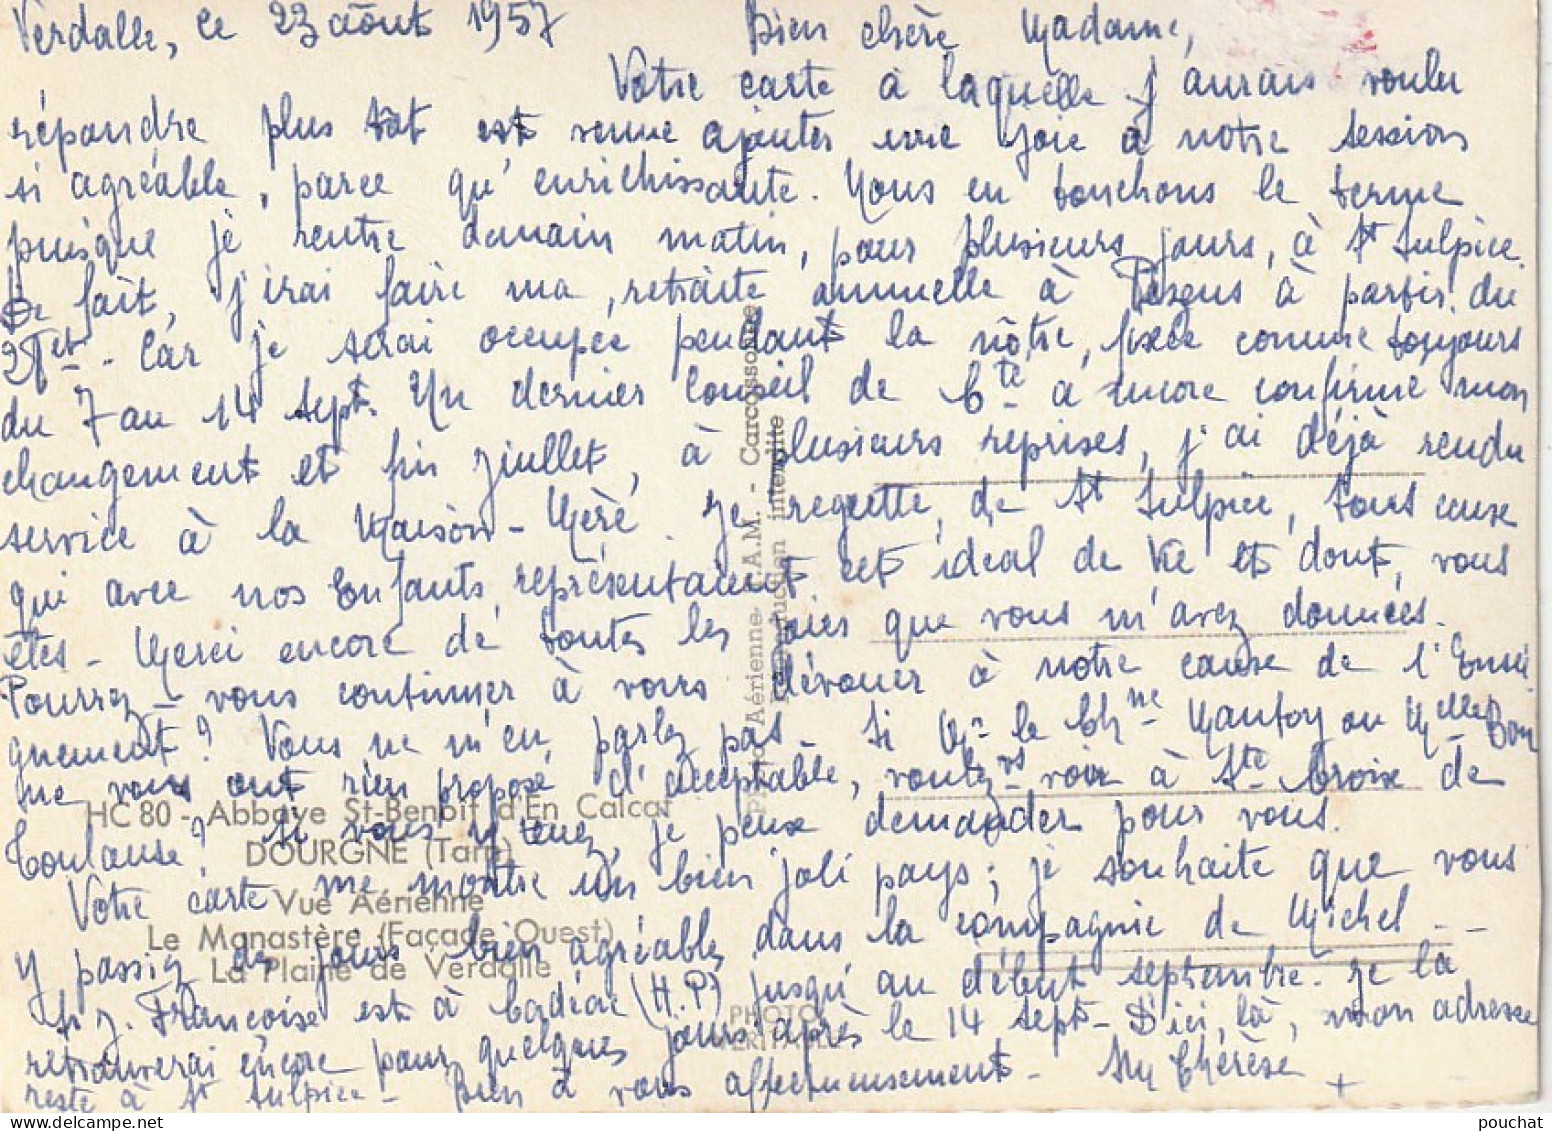 Verdalle, le 23 août 1957 Bien chère Madame,
Votre carte à laquelle j'aurais voulu
répondre plus tôt est venue ajouter une joie à notre session
si agréable, parce qu'enrichissante. Nous en touchons le terme
puisque je rentre demain matin, pour plusieurs jours, à St Sulpice.
De fait, j'irai faire ma retraite annuelle à Pezens à partir du
Car je serai occupée pendant la nôtre, fixée comme toujours
du 7 au 14 sept. Un dernier Conseil de Cté a encore confirmé mon
changement et fin juillet, à plusieurs reprises, j'ai déjà rendu
service à la Maison-Mère. Je regrette, de St Sulpice, tous ceux
qui avec nos Enfants, représentaient cet idéal de Vie et dont vous
êtes - Merci encore de toutes les joies que vous m'avez données.
Pourrez-vous continuer à vous dévouer à notre cause de l'Ensei
gnement? Vous ne m'en parlez pas. Si Mr le Chne Mantoy ou Melle Bon
ne vous ont rien proposé d'acceptable, voulez-vs voir à Ste Croix de
Toulouse? Si vous y tenez, je peux demander pour vous.
Votre carte me montre un bien joli pays; je souhaite que vous
y passiez des jours bien agréables dans la compagnie de Michel --
Sr J. Françoise est à Cadéac (H.P) jusqu'au début septembre. Je la
retrouverai encore pour quelques jours après le 14 sept - D'ici, là, mon adresse
reste à St Sulpice - Bien à vous affectueusement - Thérèse +
HC 80 - Abbaye St-Benoit d'En Calcat
DOURGNE (Tarn)
Vue Aérienne
Le Monastère (Façade Ouest)
La Plaine de Verdalle
Photo Aérienne C.A.M. - Carcassonne
Reproduction interdite
PHOTO
VERITABLE
pouchat